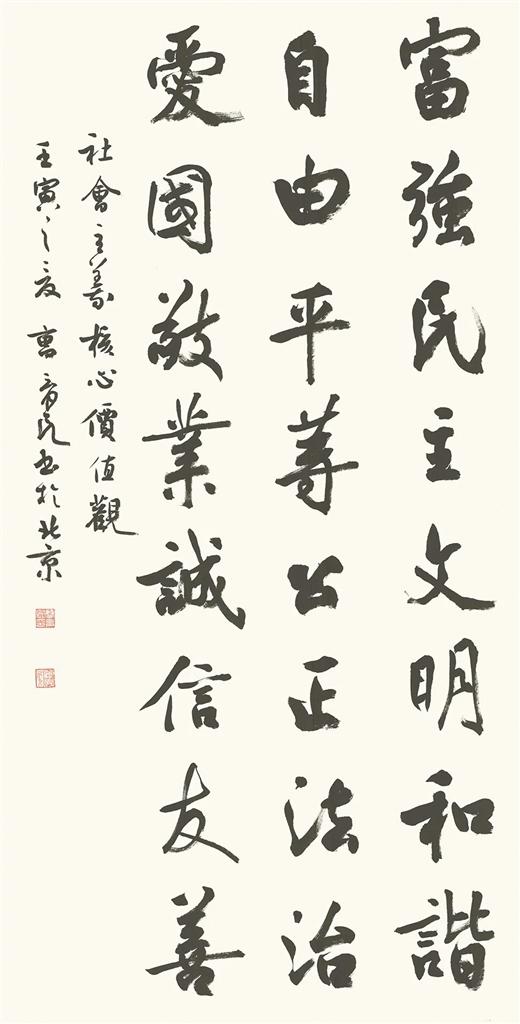 富強民主文明和諧
自由平等公正法治
愛國敬業誠信友善
社會主義核心價值觀
壬寅之夏 書於北京